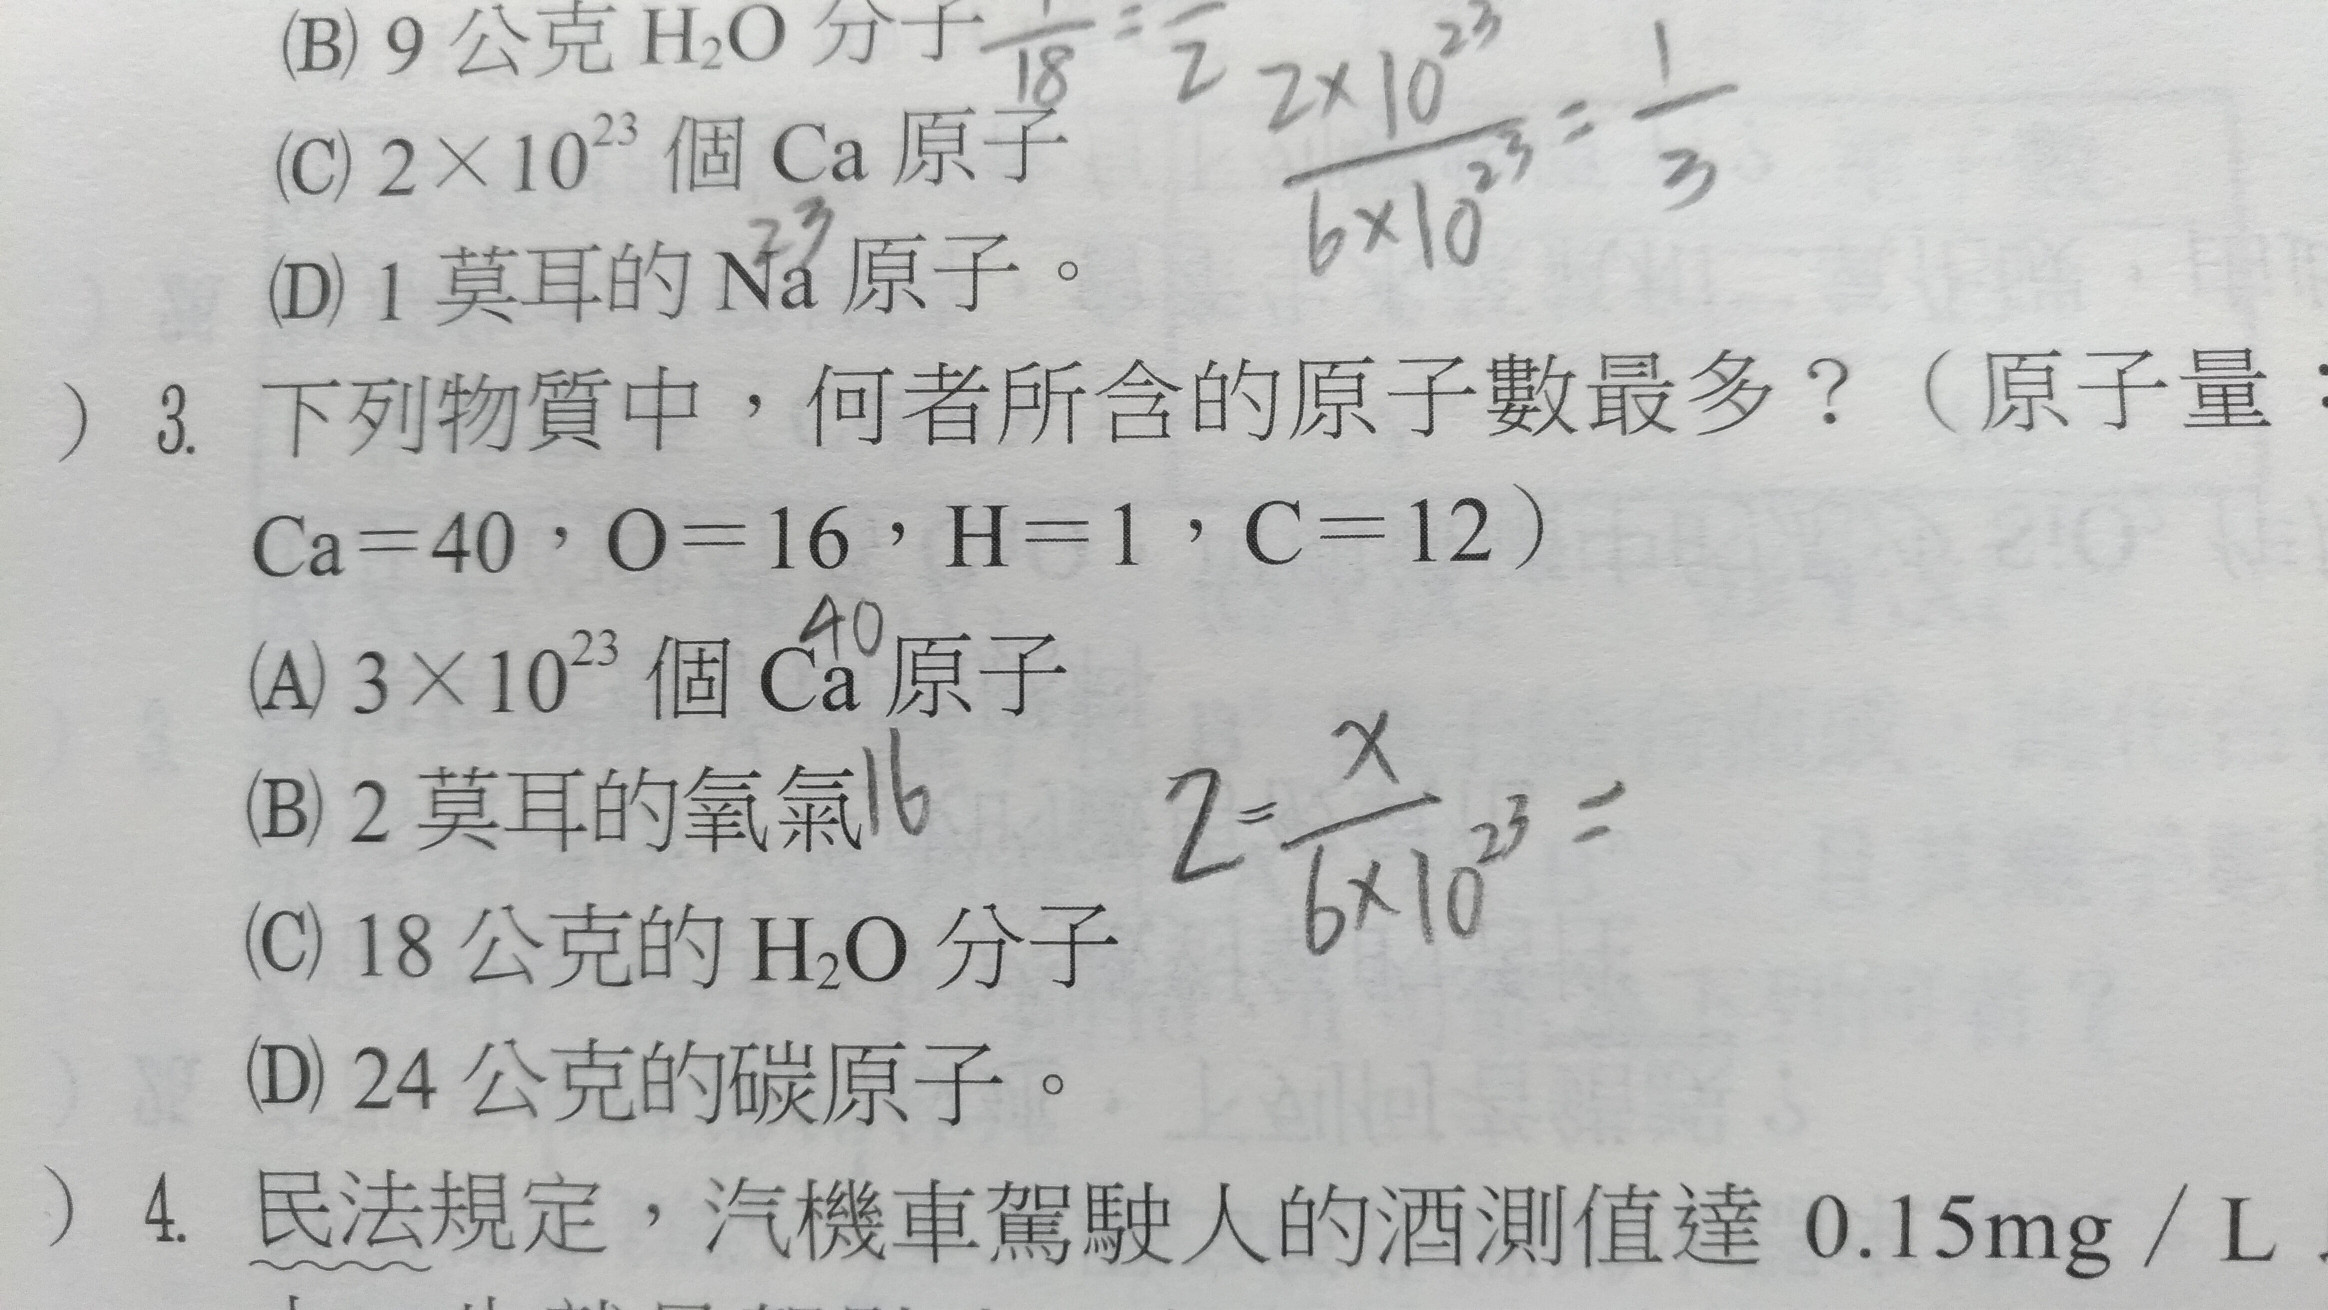 (B) 9 公克 H₂O 分子 /18 = /2
2×10²³/6×10²³ = 1/3
(C) 2×10²³ 個 Ca 原子
23
(D) 1 莫耳的 Na 原子。
) 3. 下列物質中，何者所含的原子數最多？（原子量：
Ca＝40，O＝16，H＝1，C＝12）
40
(A) 3×10²³ 個 Ca 原子
(B) 2 莫耳的氧氣 16
2 = x/6×10²³ =
(C) 18 公克的 H₂O 分子
(D) 24 公克的碳原子。
) 4. 民法規定，汽機車駕駛人的酒測值達 0.15mg / L